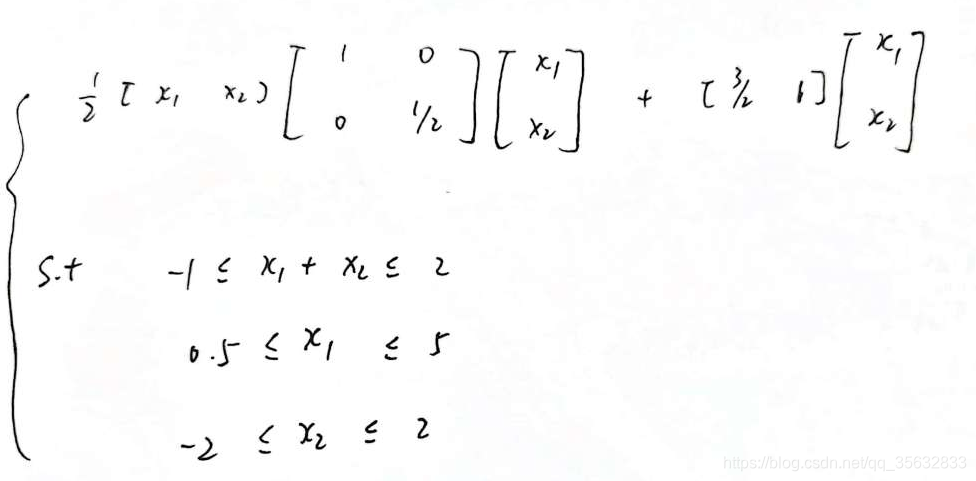 1/2 [ x₁ x₂ ] [ 1 0 ; 0 1/2 ] [ x₁ ; x₂ ] + [ 3/2 1 ] [ x₁ ; x₂ ]
s.t -1 ≤ x₁ + x₂ ≤ 2
0.5 ≤ x₁ ≤ 5
-2 ≤ x₂ ≤ 2
https://blog.csdn.net/qq_35632833